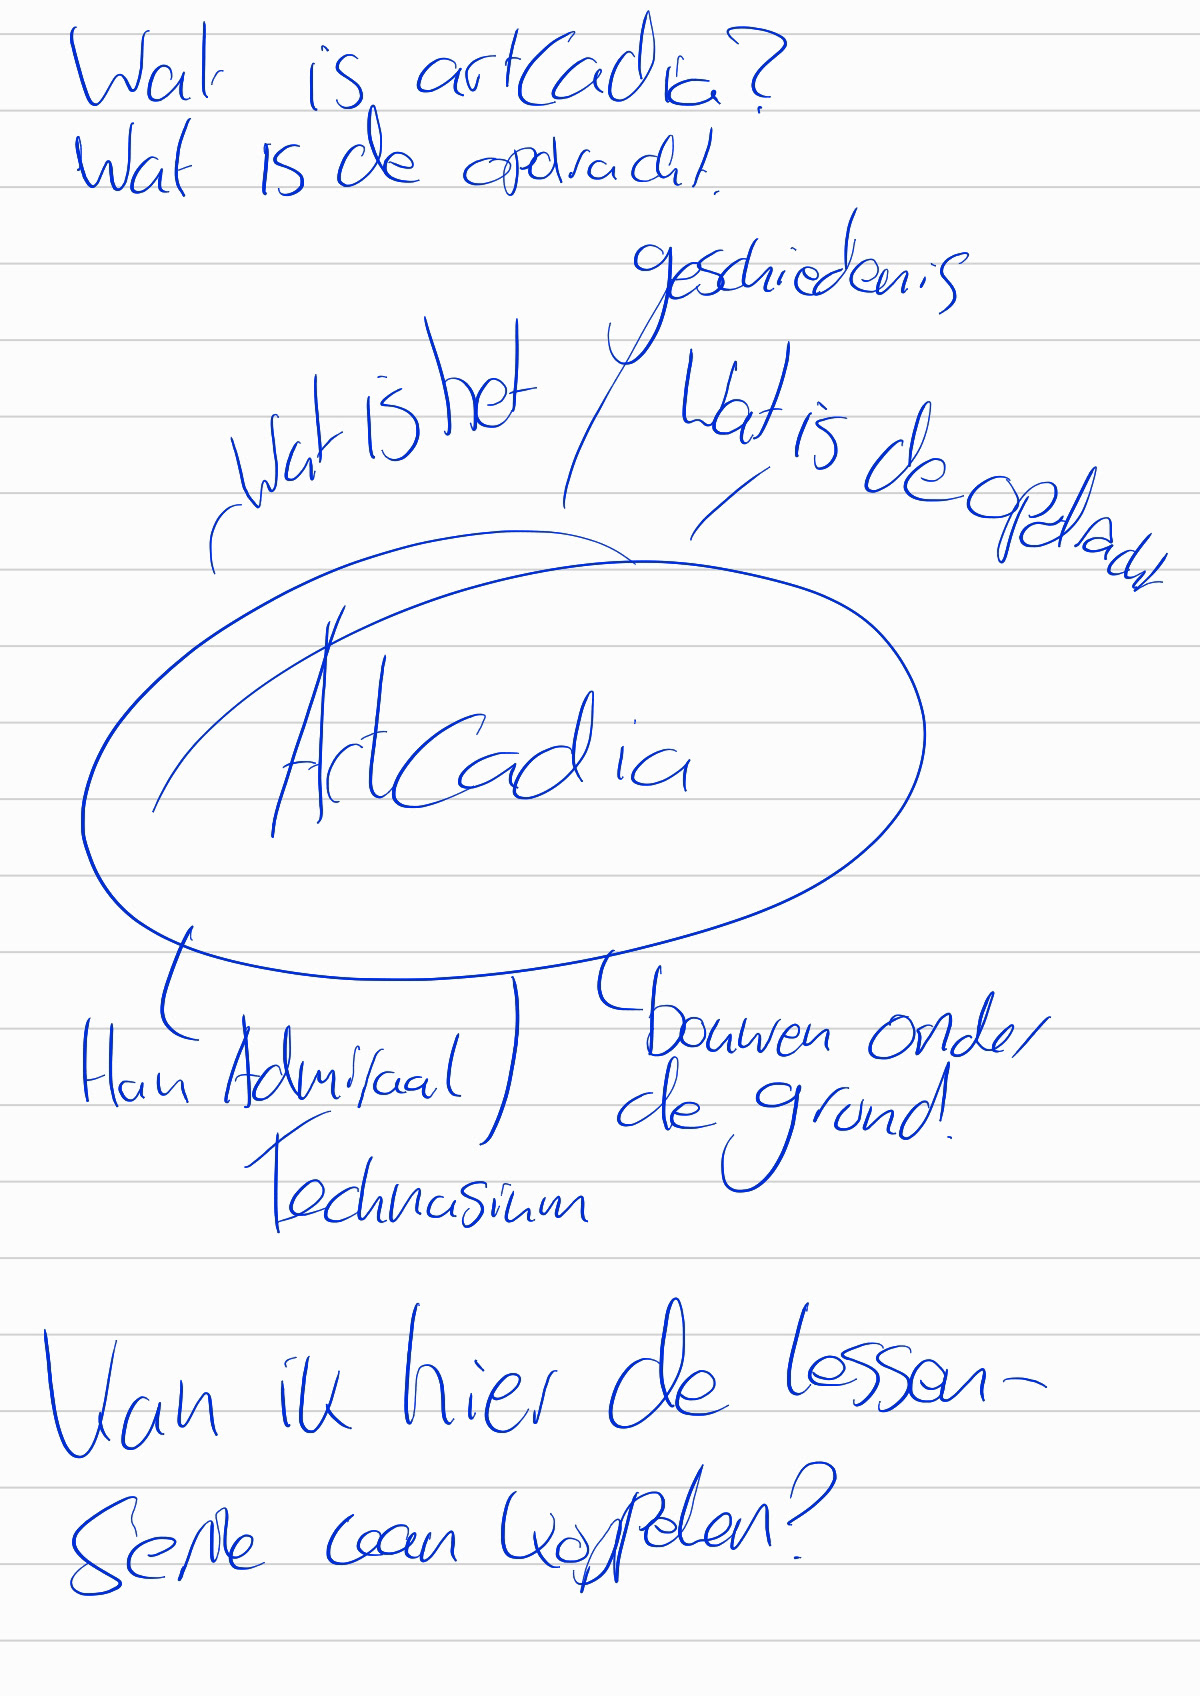 Wat is artCadia?
Wat is de opdracht!
geschiedenis
Wat is het
Wat is de opdracht
ArtCadia
Han Admiraal
bouwen onder
de grond!
Technasium
Kan ik hier de lessen-
Serie aan koppelen?